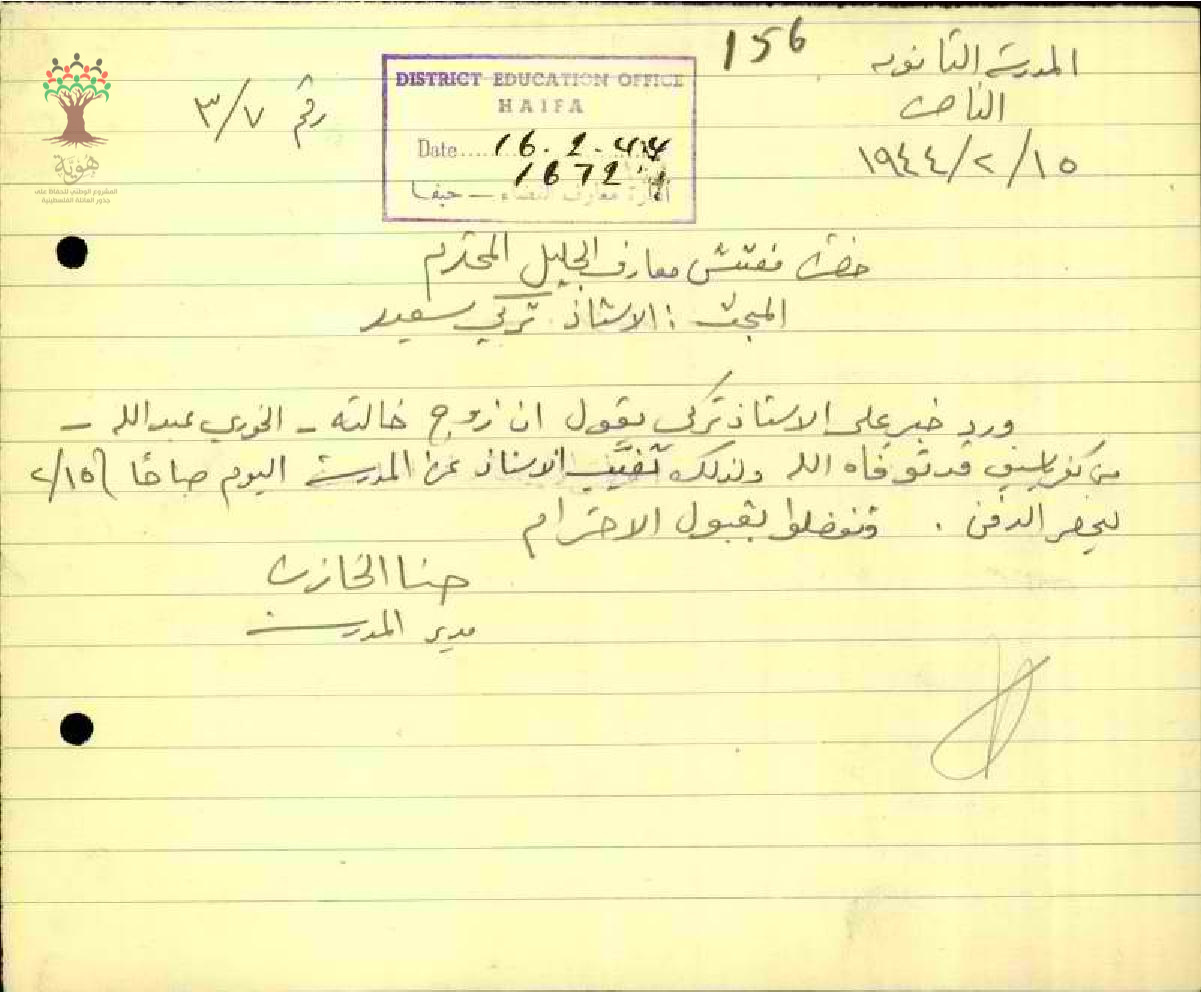 156
المدرسة الثانوية
الناصرة
١٥/٢/١٩٤٤
رقم ٣/٧
DISTRICT EDUCATION OFFICE
HAIFA
Date.... 16.2.44
1672
ادارة معارف لواء – حيفا
هُوِيَّة
المشروع الوطني للحفاظ على
جذور العائلة الفلسطينية
حضرة مفتش معارف الجليل المحترم
المبحث : الاستاذ تركي سعيد
ورد خبر على الاستاذ تركي يقول ان زوج خالته – الخوري عبدالله –
من كفرياسيف قد توفاه الله ولذلك تغيّب الاستاذ عن المدرسة اليوم صباحًا ١٥/٢
ليحضر الدفن . وتفضلوا بقبول الاحترام
حنا الخازن
مدير المدرسة